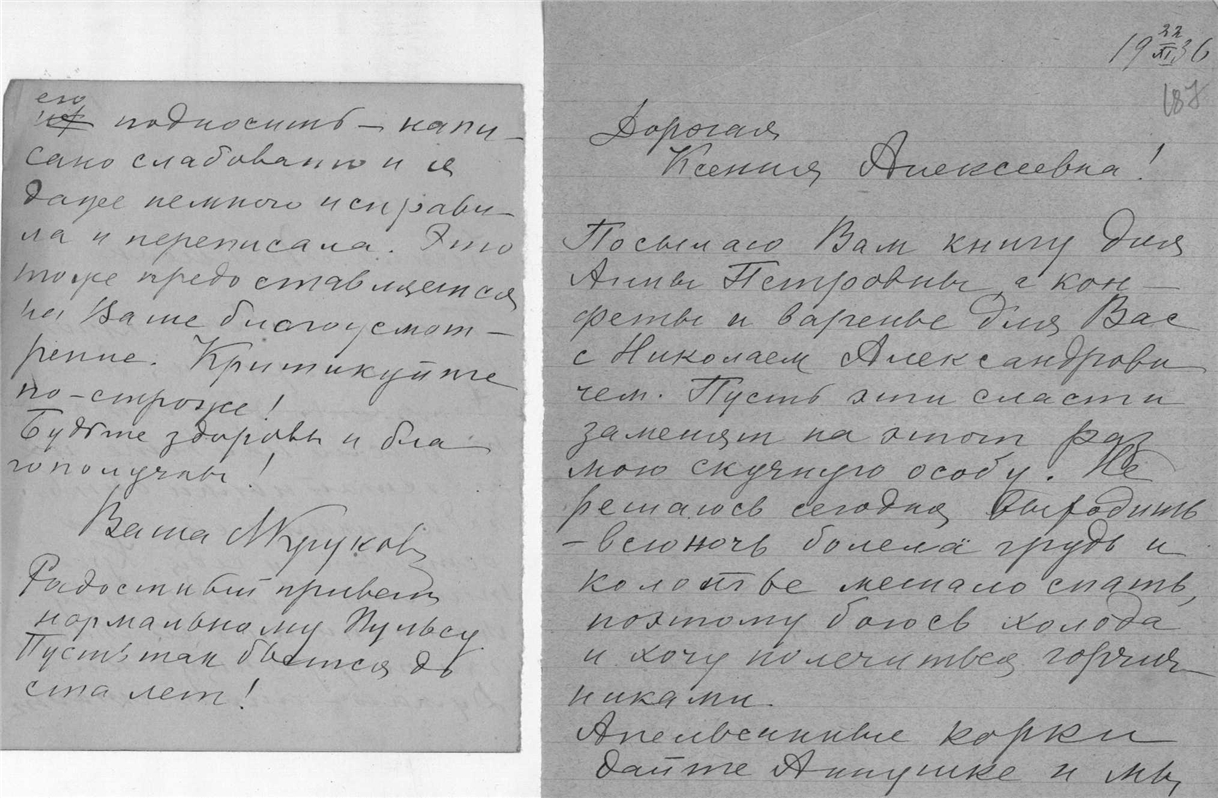 его
подносить – напи-
сано слабовато и я
даже немного исправи-
ла и переписала. Это
тоже предоставляется
на Ваше благоусмот-
рение. Критикуйте
по-строже!
Будьте здоровы и бла
гополучны!
Ваша МКрукова
Радостный привет
нормальному пульсу
Пусть так бьется до
ста лет!
19 22/XI 36
187
Дорогая
Ксения Алексеевна!
Посылаю Вам книгу для
Анны Петровны, а кон-
феты и варенье для Вас
с Николаем Александрови
чем. Пусть эти сласти
заменят на этот раз
мою скучную особу. Не
решаюсь сегодня выходить
– всю ночь болела грудь и
колотье мешало спать,
поэтому боюсь холода
и хочу полечиться горчич
никами.
Апельсинные корки
дайте Аннушке и мы